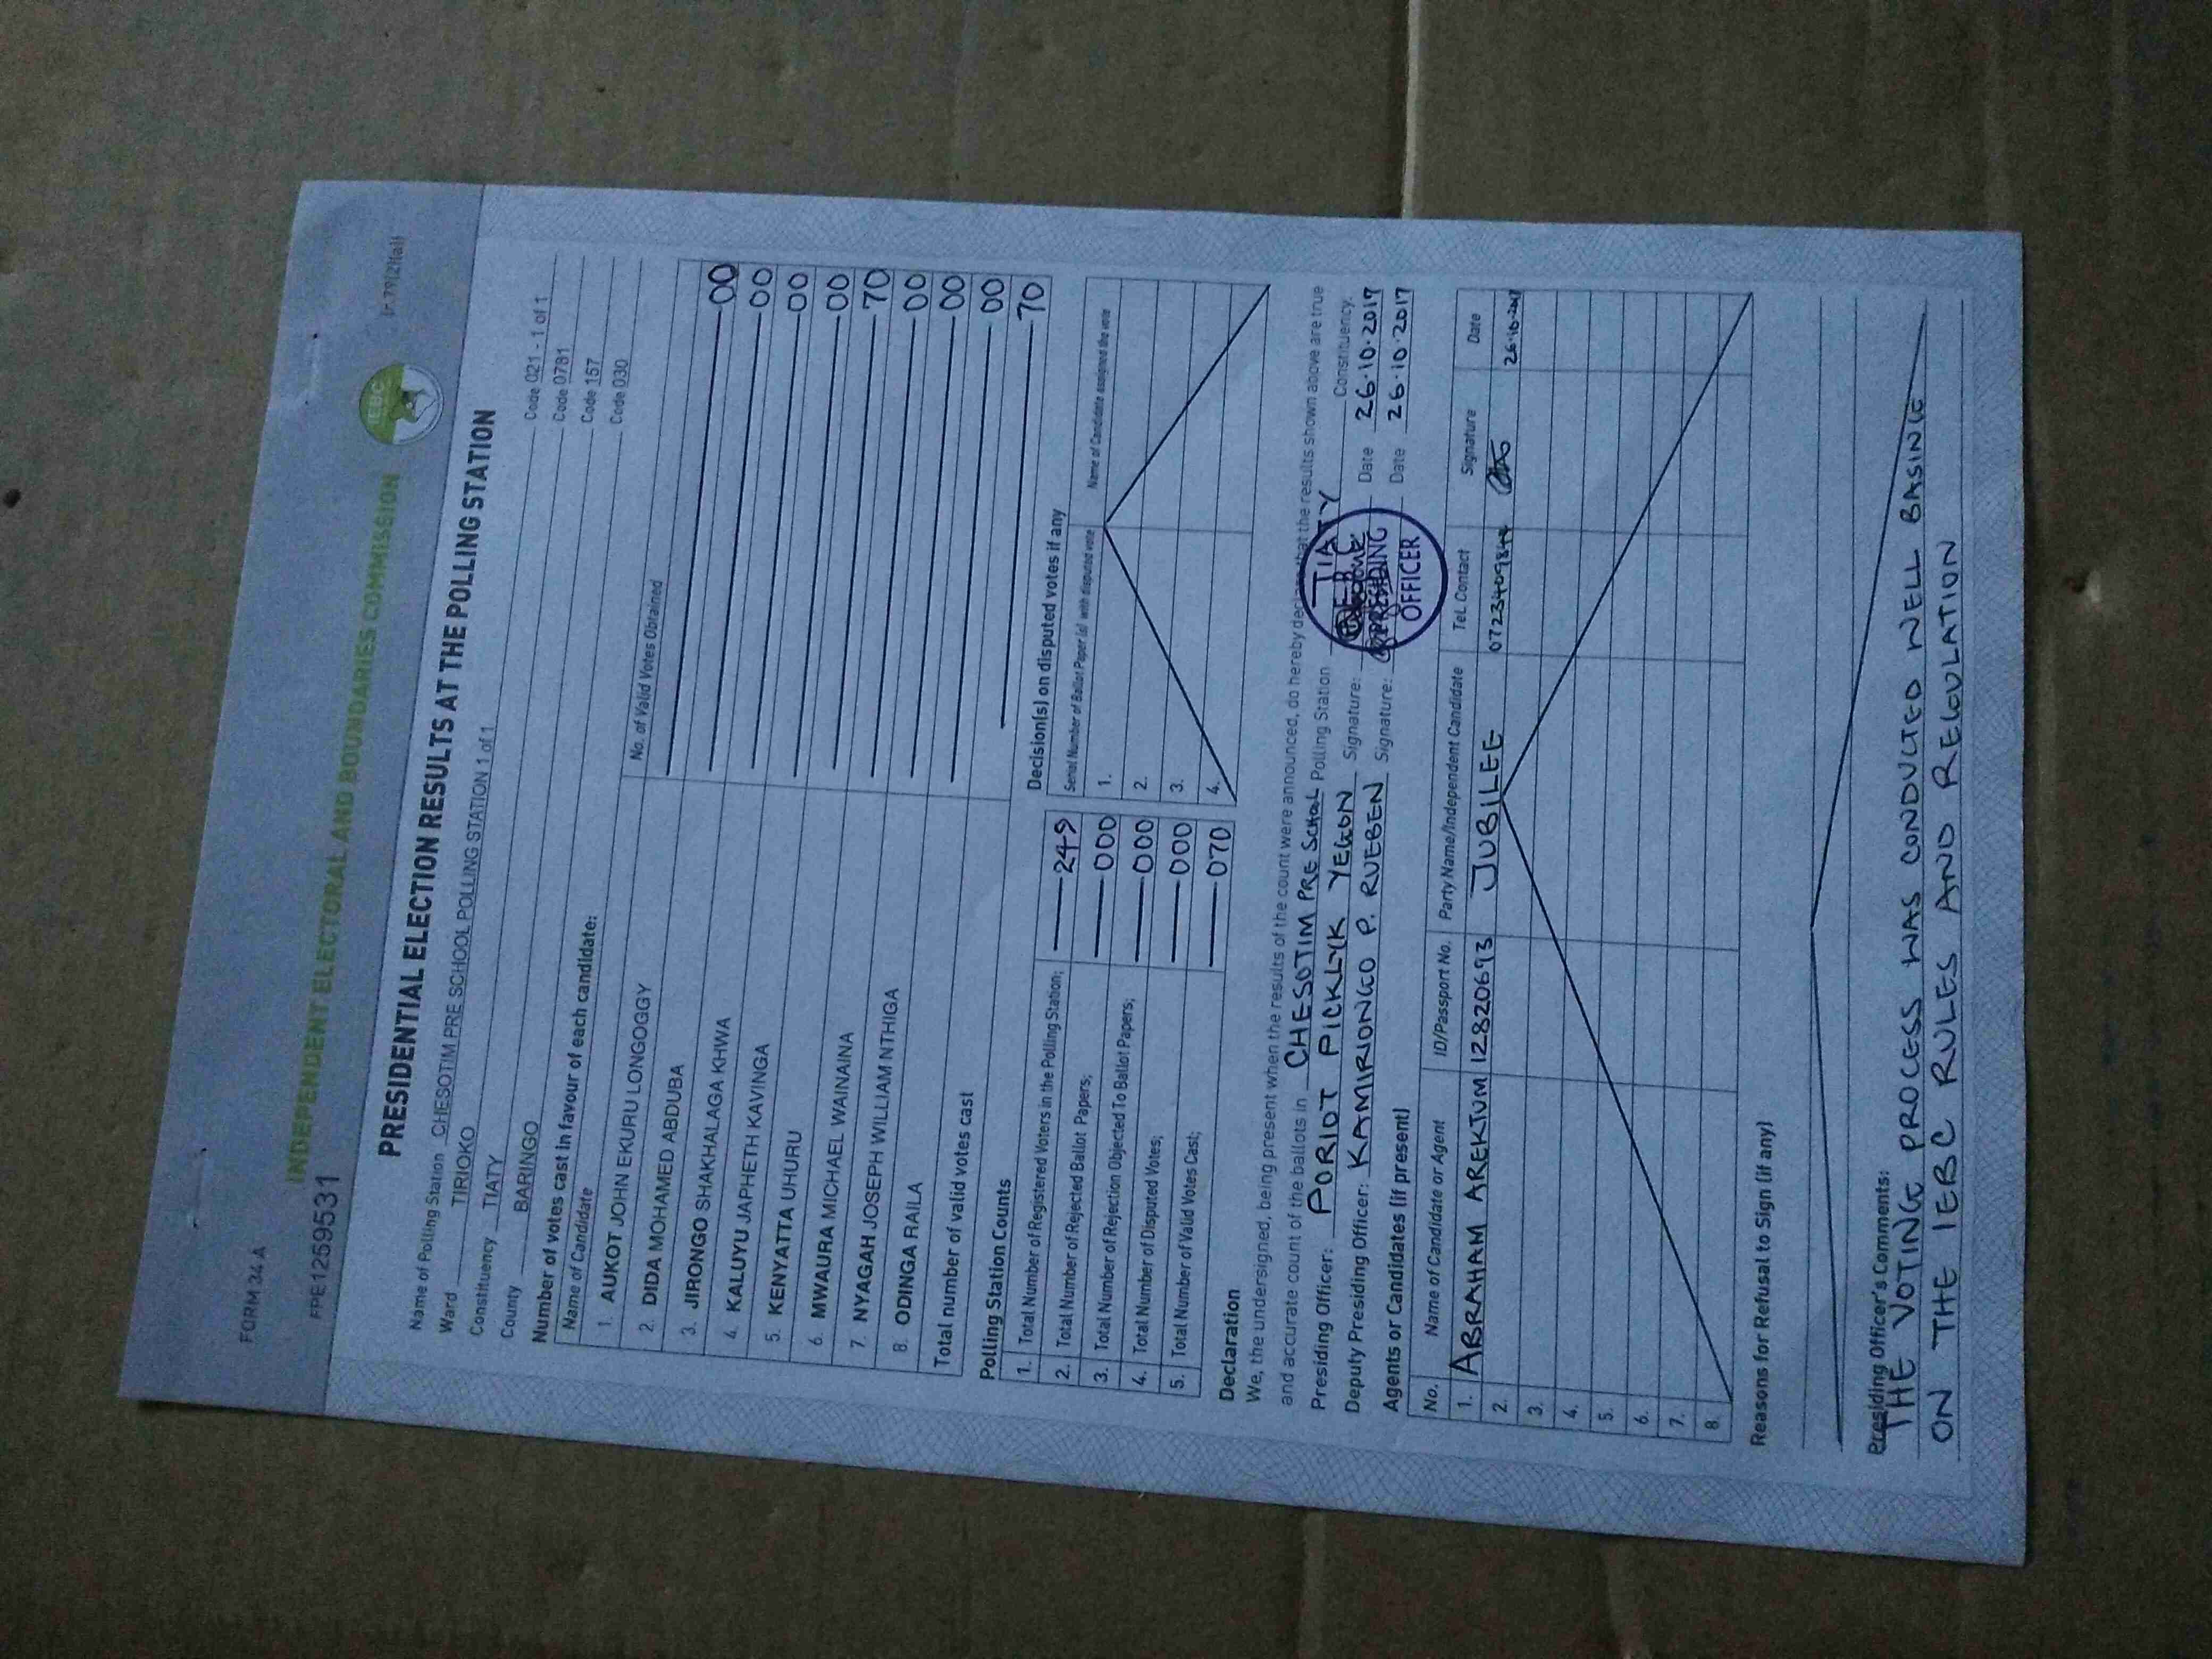 FORM 34A (r.79(2)(a))
INDEPENDENT ELECTORAL AND BOUNDARIES COMMISSION
IEBC
FPE1259531
PRESIDENTIAL ELECTION RESULTS AT THE POLLING STATION
Name of Polling Station CHESOTIM PRE SCHOOL POLLING STATION 1 of 1 Code 021 - 1 of 1
Ward TIRIOKO Code 0781
Constituency TIATY Code 157
County BARINGO Code 030
Number of votes cast in favour of each candidate:
Name of Candidate No. of Valid Votes Obtained
1. AUKOT JOHN EKURU LONGOGGY 00
2. DIDA MOHAMED ABDUBA 00
3. JIRONGO SHAKHALAGA KHWA 00
4. KALUYU JAPHETH KAVINGA 00
5. KENYATTA UHURU 70
6. MWAURA MICHAEL WAINAINA 00
7. NYAGAH JOSEPH WILLIAM NTHIGA 00
8. ODINGA RAILA 00
Total number of valid votes cast 70
Polling Station Counts
1. Total Number of Registered Voters in the Polling Station; 249
2. Total Number of Rejected Ballot Papers; 000
3. Total Number of Rejection Objected To Ballot Papers; 000
4. Total Number of Disputed Votes; 000
5. Total Number of Valid Votes Cast; 070
Decision(s) on disputed votes if any
Serial Number of Ballot Paper (s) with disputed vote Name of Candidate assigned the vote
1.
2.
3.
4.
Declaration
We, the undersigned, being present when the results of the count were announced, do hereby declare that the results shown above are true
and accurate count of the ballots in CHESOTIM PRE SCHOOL Polling Station TIATY Constituency.
Presiding Officer: PORIOT PICKLYK YEGON Signature: Date 26.10.2017
Deputy Presiding Officer: KAMIRIONGO P. RUEBEN Signature: Date 26.10.2017
PRESIDING
OFFICER
Agents or Candidates (if present)
No. Name of Candidate or Agent ID/Passport No. Party Name/Independent Candidate Tel. Contact Signature Date
1. ABRAHAM AREKTUM 12820693 JUBILEE 0723409844 26.10.2017
2.
3.
4.
5.
6.
7.
8.
Reasons for Refusal to Sign (if any)
Presiding Officer's Comments:
THE VOTING PROCESS WAS CONDUCTED WELL BASING
ON THE IEBC RULES AND REGULATION